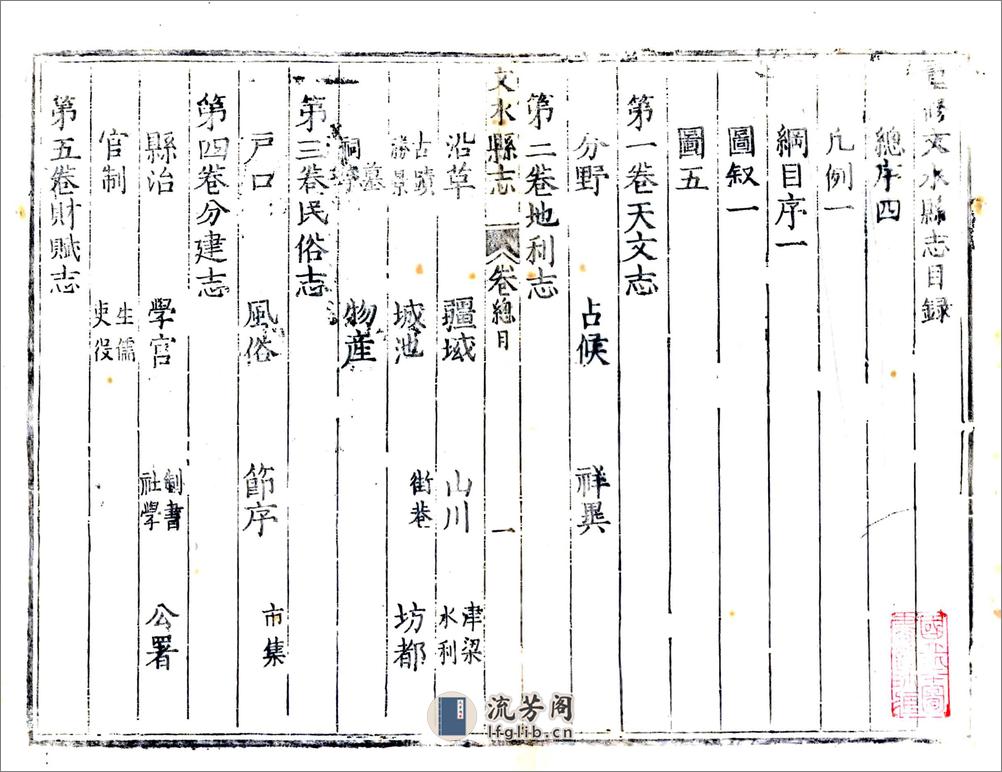 重修文水縣志目錄
總序四
凡例一
綱目序一
圖叙一
圖五
第一卷天文志
分野 占候 祥異
第二卷地利志
文水縣志 卷總目 一
沿革 疆域 山川 津梁 水利
古蹟 勝景 城池 街巷 坊都
墓 祠 物産
第三卷民俗志
戸口 風俗 節序 市集
第四卷分建志
縣治 學宫 制書 社學 公署
官制 生儒 吏役
第五卷財賦志
流芳阁
lfglib.cn